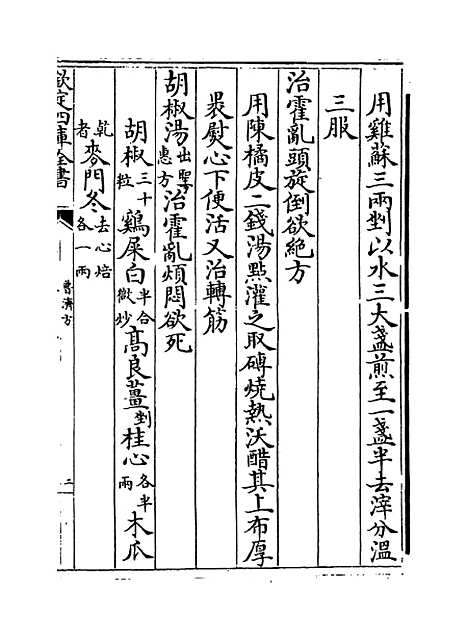 用雞蘇三兩剉以水三大盞煎至一盞半去滓分溫
三服
治霍亂頭旋倒欲絶方
用陳橘皮二錢湯點灌之取磚燒熱沃醋其上布厚
裹熨心下便活又治轉筋
胡椒湯出聖惠方治霍亂煩悶欲死
胡椒三十粒 鷄屎白半合微炒 高良薑剉 桂心各半兩 木瓜
乾者 麥門冬去心焙各一兩
欽定四庫全書
普濟方
二